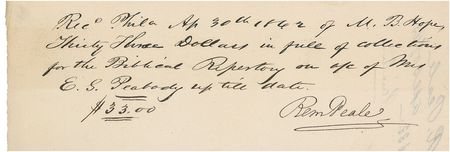 Rec^d Phila Ap 30th 1842 of M. B. Hope
Thirty Three Dollars in full of collections
for the Biblical Repertory on a/c of Mrs
E. G. Peabody up till date.
$33.00
Rem Peale